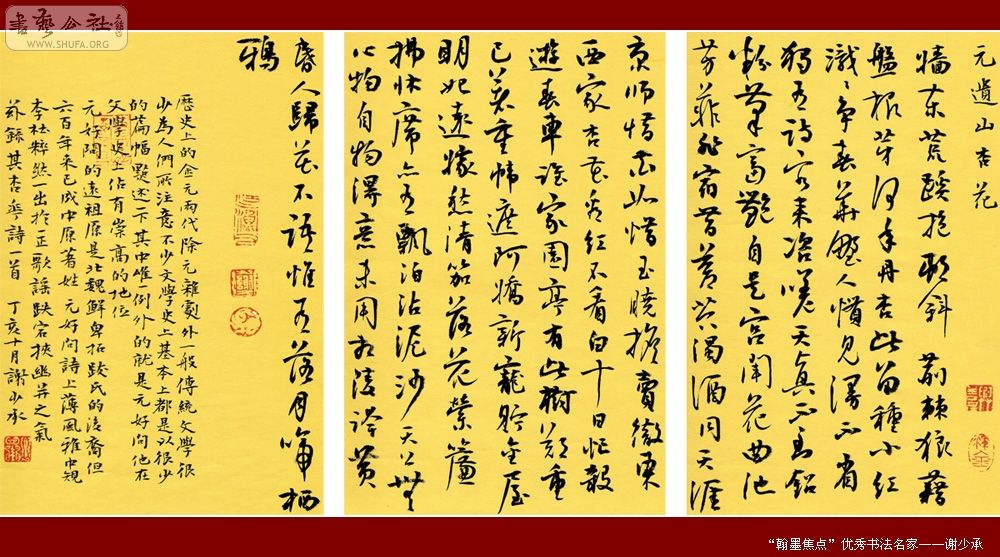 書藝公社
WWW.SHUFA.ORG
元遺山杏花
墻东荒蹊抱邨斜荊棘狼藉
盤根芽何年丹杏此留種小红
濈濈争春華野人慣見漫不省
獨有詩客来咨嗟天真不到鉛
粉筆富艷自是宫闈花曲池
芳菲非宿昔蒼苔濁酒同天涯
京師惜花如惜玉曉擔賣徹東
西家杏花看红不看白十日忙殺
遊春車誰家園亭有此樹鄭重
已著重幃遮阿嬌新寵貯金屋
明妃遠嫁愁清笳落花縈簾
拂牀席亦有飄泊沾泥沙天公無
心物自物得意未用相陵誇黄
昏人歸花不語惟有落月啼栖
鴉
歷史上的金元兩代除元雜劇外一般傳統文學很
少為人們所注意不少文學史上基本上都是以很少
的篇幅點述一下其中唯一例外的就是元好问他在
文學史上佔有崇高的地位
元好问的遠祖原是北魏鮮卑拓跋氏的後裔但
六百年来已成中原著姓元好问詩上薄風雅中規
李杜粹然一出於正歌謡跌宕挾幽并之氣
茲錄其杏花詩一首 丁亥十月謝少承
“翰墨焦点”优秀书法名家——谢少承